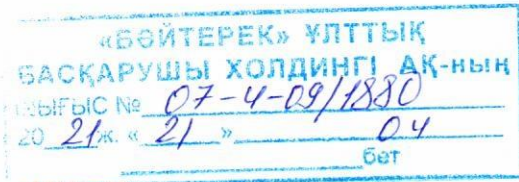 «БӘЙТЕРЕК» ҰЛТТЫҚ
БАСҚАРУШЫ ХОЛДИНГІ АҚ-ның
ШЫҒЫС № 07-4-09/1880
20 21 ж. « 21 » 04
бет